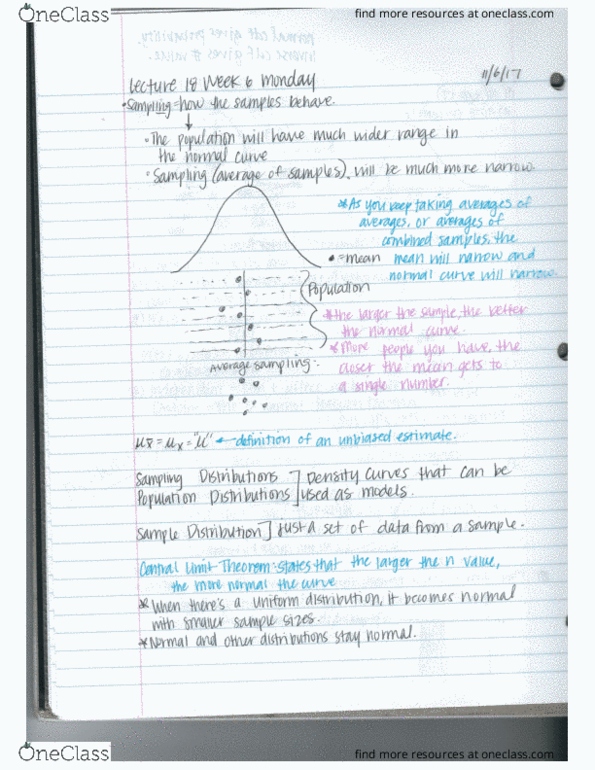 OneClass
find more resources at oneclass.com
normal cdf gives probability.
inverse cdf gives # value.
Lecture 18 Week 6 Monday
11/6/17
•Sampling=how the samples behave.
•The population will have much wider range in
the normal curve
•Sampling (average of samples), will be much more narrow.
*As you keep taking averages of
averages, or averages of
combined samples, the
mean will narrow and
normal curve will narrow.
•=mean
Population
*the larger the sample, the better
the normal curve.
*More people you have, the
closer the mean gets to
a single number.
Average sampling:
μx̄ = μx = "μ" ← definition of an unbiased estimate.
Sampling Distributions ] Density curves that can be
Population Distributions ] used as models.
Sample Distribution ] just a set of data from a sample.
Central Limit Theorem: states that the larger the n value,
the more normal the curve
*When there's a uniform distribution, it becomes normal
with smaller sample sizes.
*Normal and other distributions stay normal.
OneClass
find more resources at oneclass.com